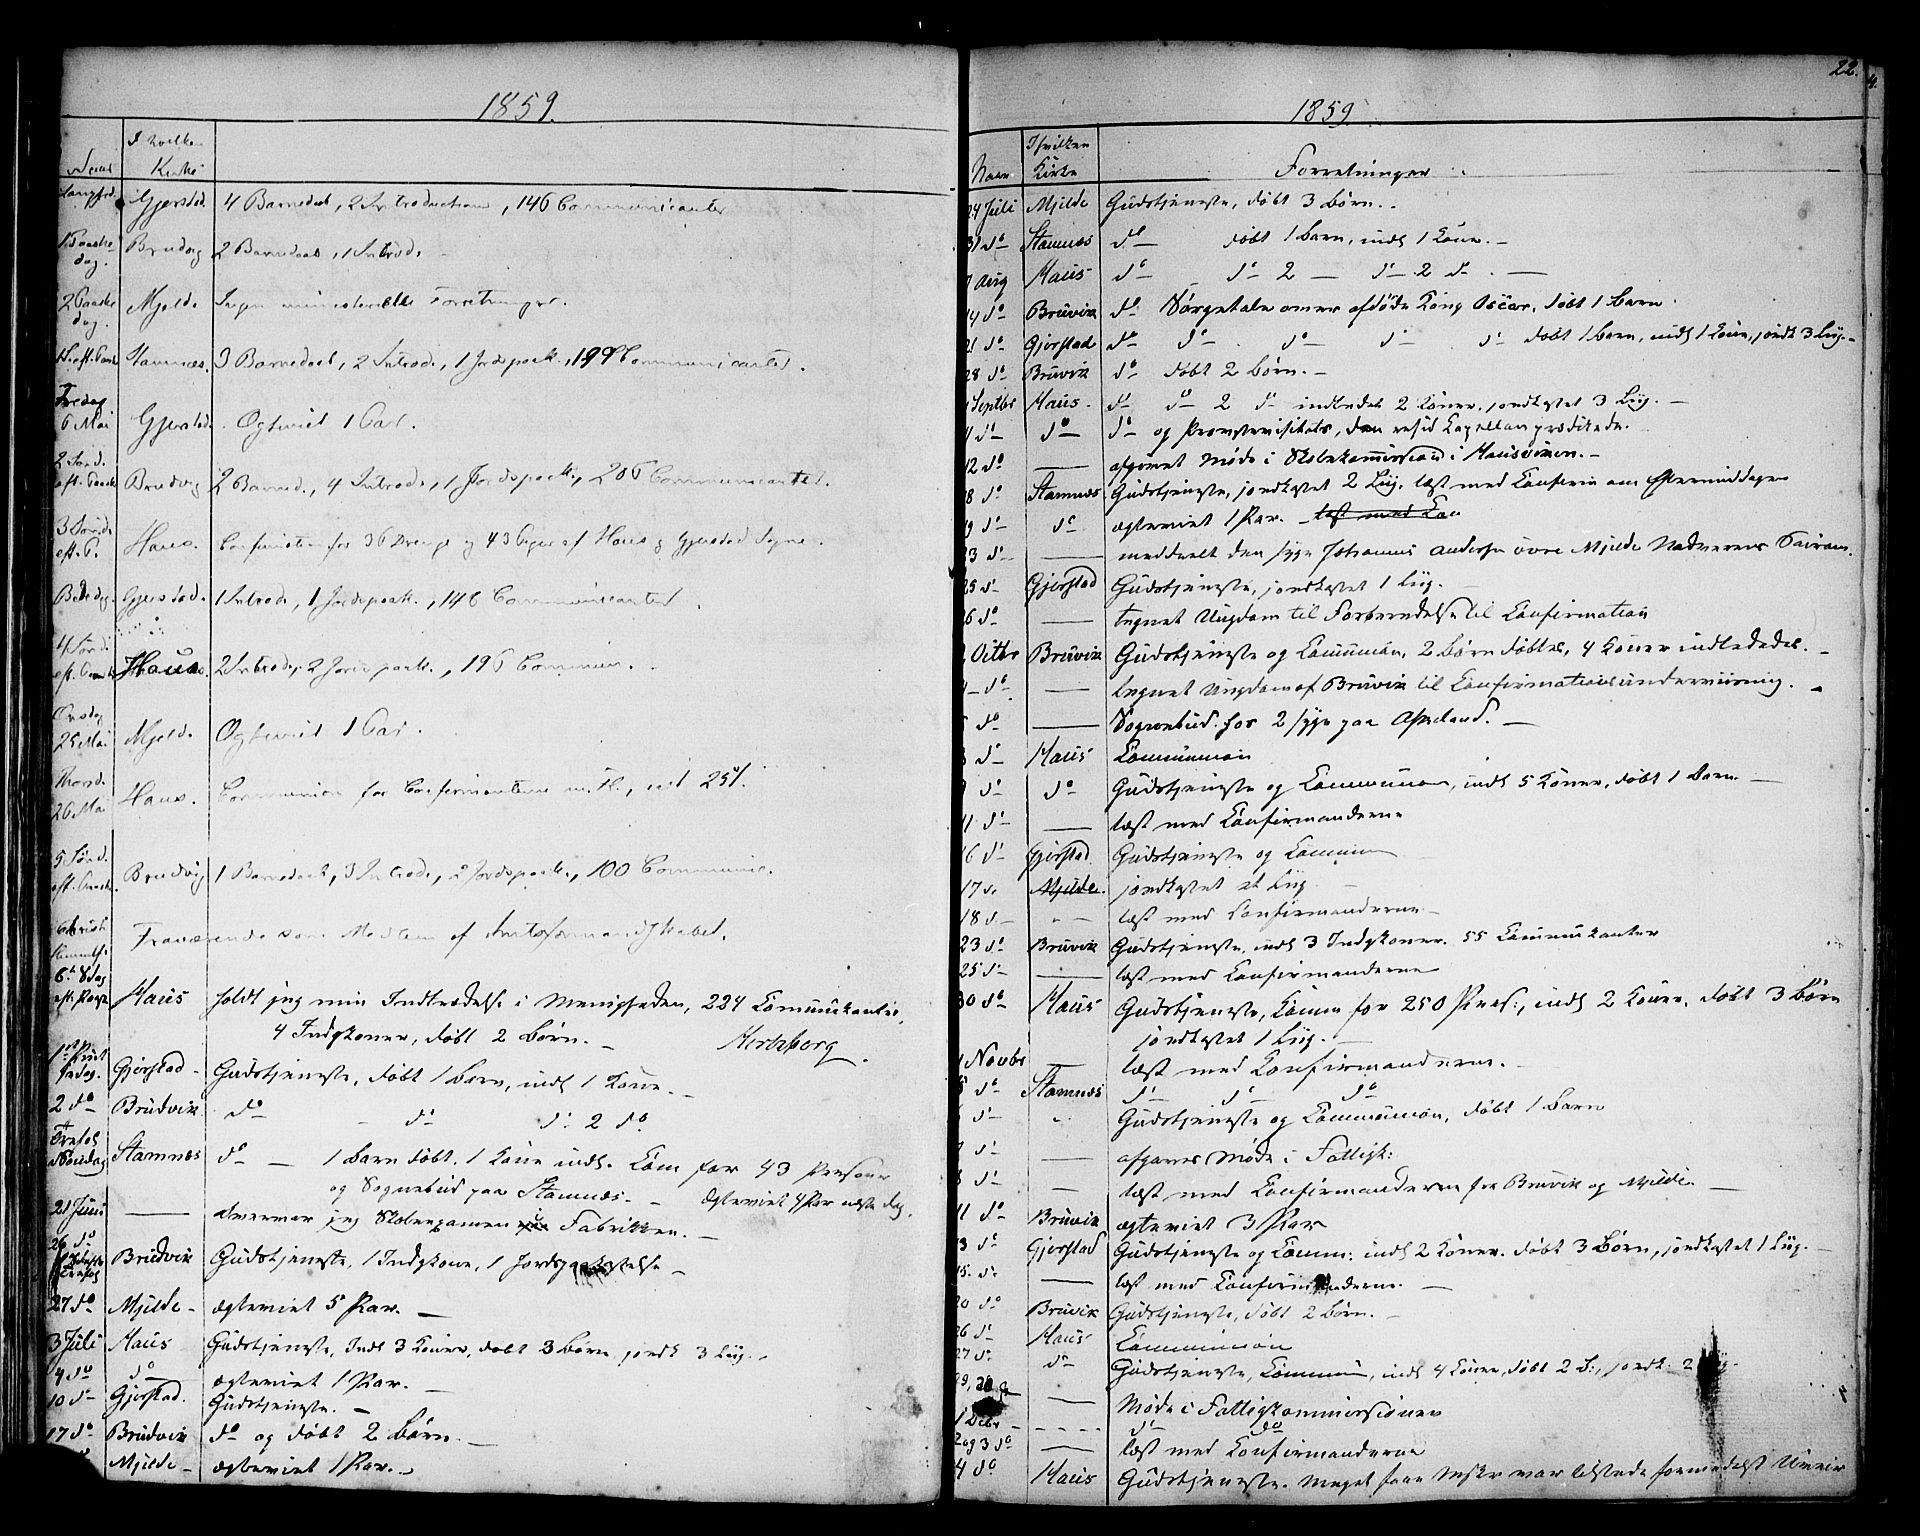 1859.
I hvilken
Naar Kirke
Langfred. Gjerstad. 4 Barnedaab, 2 Introductioner, 146 Communicanter
1 Paaske- Brudvig 2 Barnedaab, 1 Introd.
dag.
2 Paaske Mjelde Ingen ministerielle Forretninger.
dag.
1 S. eft. Paaske Stamnæs. 3 Barnedaab, 2 Introd., 1 Jordspaak., 199 Communicanter.
Fredag
6 Mai Gjerstad. Ægteviet 1 Par.
2 Sønd.
eft. Paaske Brudvig 2 Barned., 4 Introd., 1 Jordspaak., 206 Communicanter.
3 Sønd.
eft. P. Haus. Confirmation for 36 Drenge og 43 Piger af Haus og Gjerstad Sogne.
Bededag. Gjerstad. 1 Introd., 1 Jordspaak., 146 Communicanter.
4 Sønd.
eft. Paaske Haus. 2 Introd., 2 Jordspaak., 196 Commun.
Onsdag
25 Mai Mjelde Ægteviet 1 Par.
Thorsd.
26 Mai Haus. Communion for Confirmanterne
5 Sønd.
eft. Paaske. Brudvig 1 Barnedaab, 3 Introd., 2 Jordspaak., 100 Communic.
Christi
Himmelf. Fraværende som Medlem af
6te Sdag
eft. Paaske Haus holdt jeg min Indtrædelse i Menigheden, 224 Communikanter,
4 Indgkoner, døbt 2 Børn. — Hertzberg.
1ste Pint
sedag. Gjerstad — Gudstjeneste, døbt 1 Barn, indl 1 Kone. —
2 do Brudvik do — d. d. 2 do
Trefol
Søndag Stamnæs do — 1 Barn døbt. 1 Kone indl. Com for 43 Personer
og Sognebud paa Stamnæs. — Ægteviet 4 Par næste dag.
21 Juni — overvar jeg Skoleexamen Fabrikken. —
26 do
Trefol Brudvik Gudstjeneste, 1 Indgkone, 1 Jordspaakastelse —
27 do Mjelde — ægteviet 5 Par. —
3 Juli Haus Gudstjeneste, Indl 3 Koner, døbt 3 Børn jordk 3 Liig. —
4 do do ægteviet 1 Par. —
10 d— Gjerstad. Gudstjeneste. —
17 do Brudvik do og døbt 2 Børn. —
Mjelde — ægteviet 1 Par. —
22.
4.
1859
I hvilken
Naar Kirke Forretninger.
24 Juli Mjelde Gudstjeneste, døbt 3 Børn.
31 do Stamnæs do — døbt 1 Barn, indl 1 Kone. —
7 Aug Haus do — do 2 — d— 2 d— —
14 do Bruvik do Sørgetale over afdøde Kong Oscar, døbt 1 Barn.
21 do Gjerstad do do do d— d— døbt 1 Barn, indl 1 Kone, jordk 3 Liig. —
28 do Bruvik do døbt 2 Børn. —
Septbr Haus. do do 2 d— indledet 2 Koner, jordkastet 3 Liig. —
11 d— do d— og Provstevisitats, den resid Capellan prædikede.
12 do — afgivet Møde i Skolekommission i Hausviken. —
18 do Stamnæs Gudstjeneste, jordkastet 2 Liig, læst med Konfirm om Eftermiddagen
19 d— do ægteviet 1 Par. — læst med Con
23 d— — meddeelt den syge Johannes Andersen øvre Mjelde Nadverens Sacram.
25 d— Gjerstad Gudstjeneste, jordkastet 1 Liig. —
26 do — tegnet Ungdom til Forberedelse til Confirmation
2 Octbr Bruvik Gudstjeneste og Communion, 2 Børn døbtes, 4 Koner indlededes. —
4 do — tegnet Ungdom af Bruvik til Confirmationsunderviisning. —
5 do — Sognebud for 2 syge paa Aspeland. —
8 d— Haus Communion
9 d— do Gudstjeneste og Communion, indl 5 Koner, døbt 1 Barn. —
11 d— — læst med Confirmanderne
16 d— Gjerstad. Gudstjeneste og Commun
17 d. Mjelde. jordkastet et Liig —
18 d— — læst med Confirmanderne —
23 do Bruvik Gudstjeneste, indl 3 Indgkoner. 55 Communikanter
25 d— — læst med Confirmanderne
30 do Haus Gudstjeneste, Comm for 250 Pers:, indl 2 Koner, døbt 3 Børn
jordkastet 1 Liig. —
1 Novbr — læst med Confirmanderne. —
5 do Stamnæs d— d— do
6 d— Gudstjeneste og Communion, døbt 1 Barn
7 d— — afgivet Møde i Fattigk:
8 d— — læst med Confirmanderne fra Bruvik og Mjelde —
11 do Bruvik ægteviet 3 Par
13 do Gjerstad Gudstjeneste og Comm: indl 2 Koner. døbt 3 Børn, jordkastet 1 Liig. —
15. d. — læst med Confirmanderne. —
20 do Bruvik Gudstjeneste, døbt 2 Børn. —
26 d— Haus Communion
27 d. d— Gudstjeneste, Commun, indl 4 Koner, døbt 2 B:, jordk: 2 Liig.
— Møde i Fattigkommissionen
1 Decbr — d— do
2 og 3 do — læst med Confirmanderne
4 do Haus Gudstjeneste. Meget faae Msker var tilstede formedelst Uveir